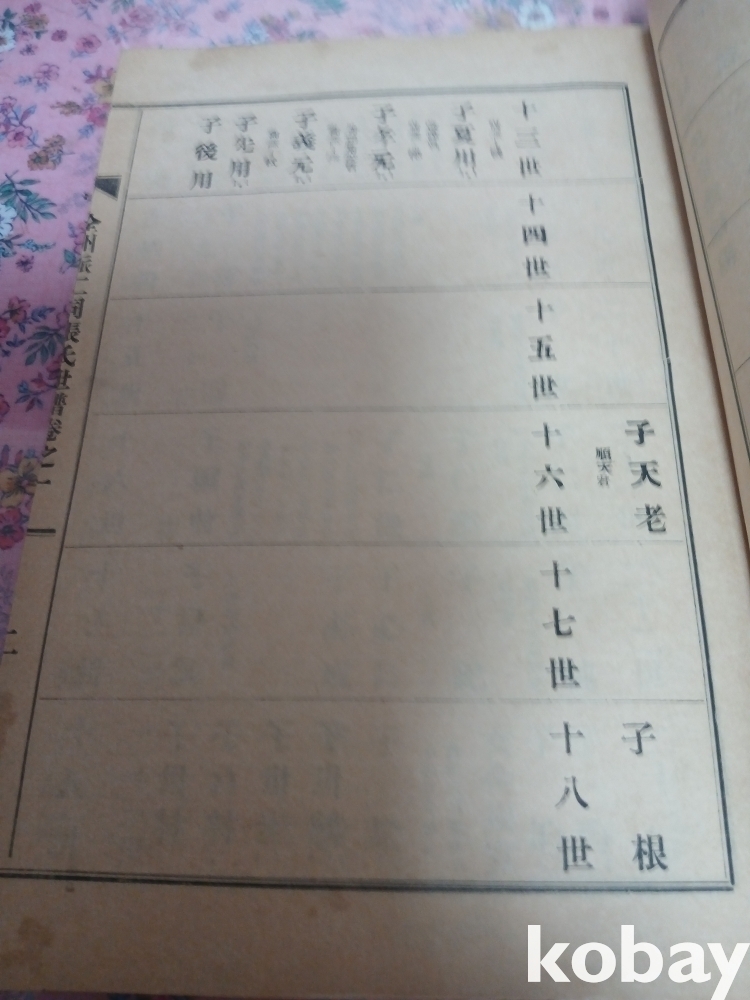 子天老
順天君
子根
十三世
十四世
十五世
十六世
十七世
十八世
子夏用
子孝元
子義元
子先用
子後用
全州派仁同張氏世譜卷之一
kobay